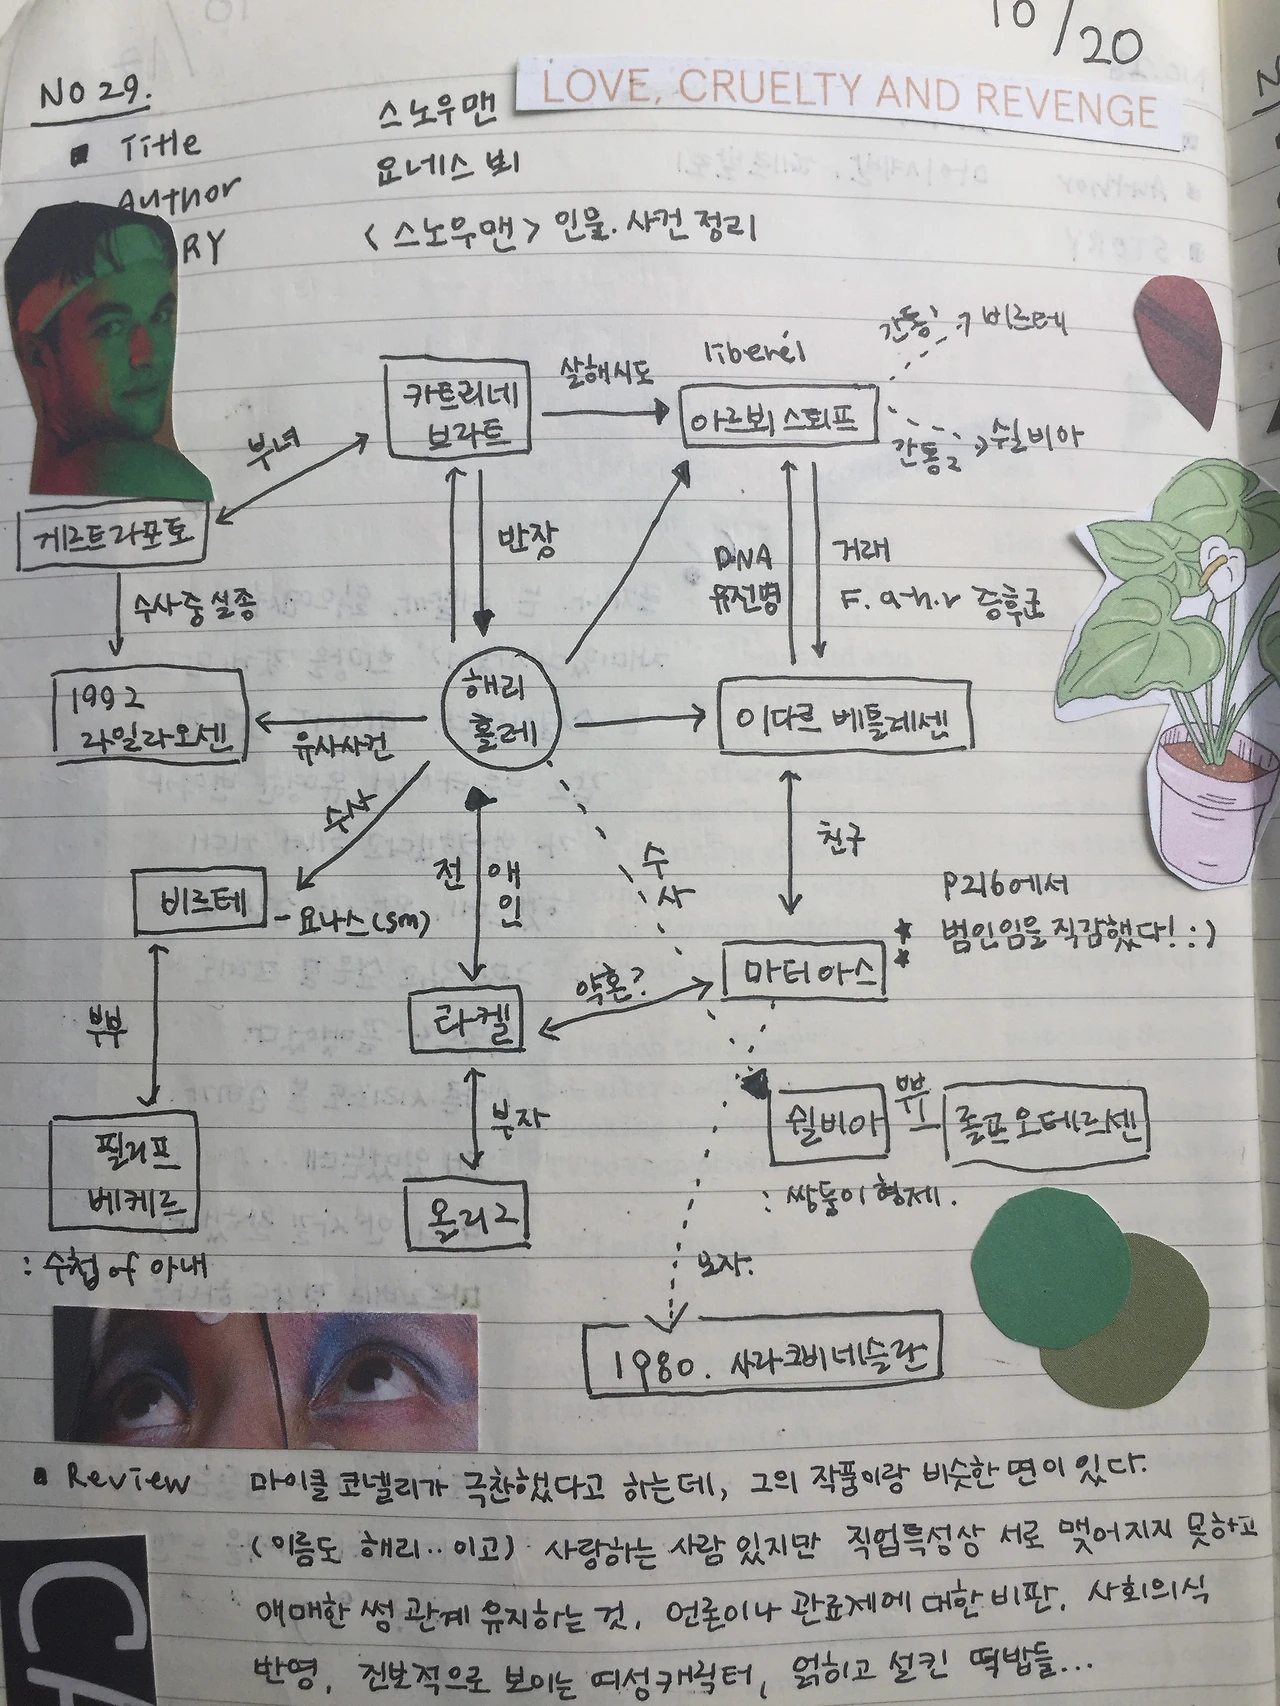 10/20
NO 29.
LOVE, CRUELTY AND REVENGE
■ Title 스노우맨
Author 요네스 뵈
RY <스노우맨> 인물.사건 정리
간통1 → 비르테
liberél
카트리네
브라트
살해시도
아르뵈 스퇴프
간통2 → 쉴비아
부녀
게르트라프토
반장
DNA
유전병
거래
F.a.h.r 증후군
수사중 실종
1992
라일라오센
유사사건
해리
홀레
이다르 베틀레센
수사
비르테
- 요나스(sm)
전 애인
수사
친구
P216에서
범인임을 직감했다! :)
마티아스
약혼?
라켈
부부
부자
필리프
베케르
올리그
쉴비아
부부
롤프 오테르센
: 쌍둥이 형제.
: 수첩 of 아내
모자.
1980. 사라크비네슬란
■ Review 마이클 코넬리가 극찬했다고 하는데, 그의 작품이랑 비슷한 면이 있다.
(이름도 해리..이고) 사랑하는 사람 있지만 직업특성상 서로 맺어지지 못하고
애매한 썸 관계 유지하는 것, 언론이나 관료제에 대한 비판, 사회의식
반영, 진보적으로 보이는 여성캐릭터, 얽히고 설킨 떡밥들...
CA